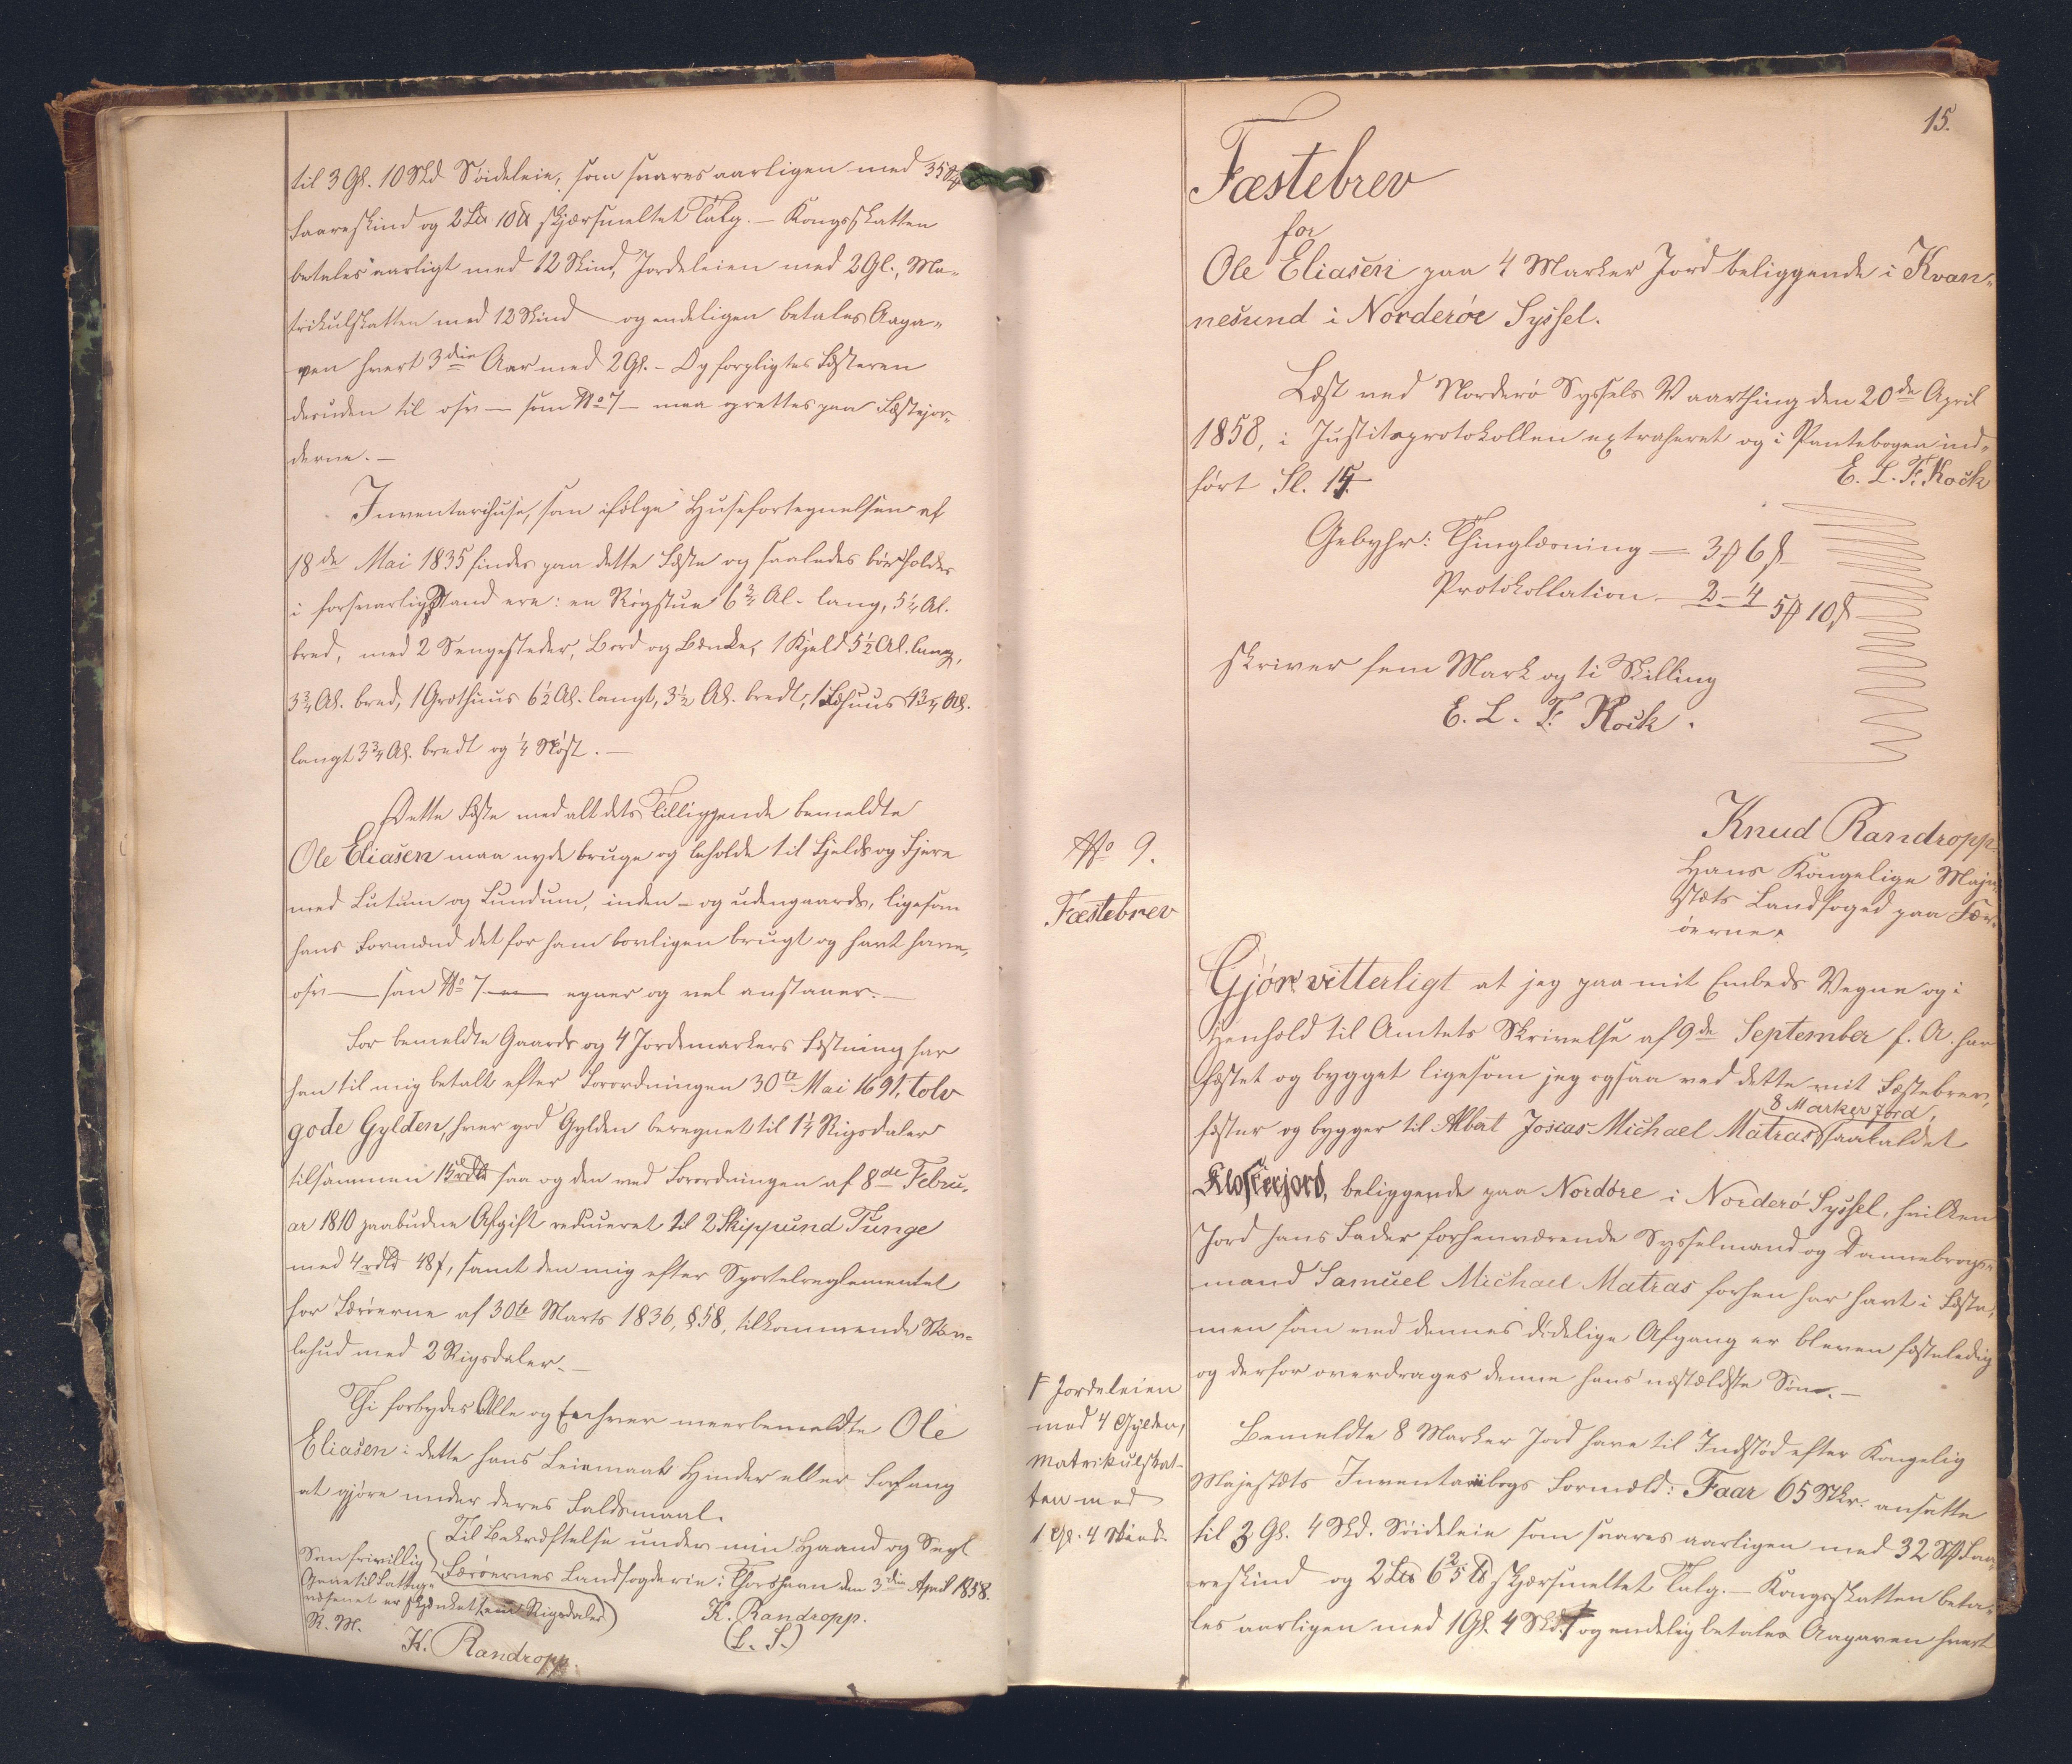 til 3 Gl. 10 Skd Söideleie, som svares aarligen med 35 St
Faareskind og 2 L℔ 10 ℔ skjærsmeltet Talg. – Kongsskatten
betales aarligt med 12 Skind, Jordeleien med 2 Gl., Ma-
trikulskatten med 12 Skind og endeligen betales Aaga-
ven hvert 3die Aar med 2 Gl. – Og forpligtes Fæsteren
desuden til osv – som No 7 – maa oprettes paa Fæstejor-
derne. –
Inventariihuse, som ifølge Husefortegnelsen af
18de Mai 1835 findes paa dette Fæste og saaledes bør holdes
i forsvarlig Stand ere: en Røgstue 6 3/4 Al. lang, 5 1/4 Al.
bred, med 2 Sengesteder, Bord og Bænke, 1 Kjeld 5 1/2 Al. lang,
3 3/4 Al. bred, 1 Grothuus 6 1/2 Al. langt, 3 1/2 Al. bredt, 1 Fæhuus 4 3/4 Al.
langt 3 3/4 Al. bredt og 1/4 Nøst. –
Dette Fæste med alt dets Tilliggende bemeldte
Ole Eliasen maa nyde bruge og beholde til Fjelds og Fjære
med Lutum og Lundum, inden- og udengaards, ligesom
hans Formænd det for ham lovligen brugt og havt have,
osv – som No 7 – egner og vel anstaaer. –
For bemeldte Gaards og 4 Jordemarkers Fæstning har
han til mig betalt efter Forordningen 30te Mai 1691, tolv
gode Gylden, hver god Gylden beregnet til 1 1/4 Rigsdaler
tilsammen 15 rdlr saa og den ved Forordningen af 8de Febru-
ar 1810 paabudne Afgift reduceret til 2 Skippund Tunge
med 4 rdlr 48 ſ, samt den mig efter Sportelreglementet
for Færøerne af 30te Marts 1836, § 58, tilkommende Støv-
lehud med 2 Rigsdaler. –
Thi forbydes Alle og Enhver meerbemeldte Ole
Eliasen i dette hans Leiemaal Hinder eller Forfang
at gjøre under deres Faldsmaal.
Til Bekræftelse under min Haand og Segl
Færøernes Landfogderie i Thorshavn den 3die April 1858.
K. Randropp.
(L. S.)
Som frivillig
Gave til Fattig-
væsenet er skjænket een Rigsdaler
R. M.
K. Randropp.
15.
Fæstebrev
for
Ole Eliasen paa 4 Marker Jord beliggende i Kvan-
nesund i Norderøe Syssel.
Læst ved Norderø Syssels Vaarthing den 20de April
1858, i Justitsprotokollen extraheret og i Pantebogen ind-
ført Fl. 15.
E. L. F. Kock
Gebyhr: Thinglæsning – 3 ₰ 6 ſ
Protokollation – 2 – 4
5 ₰ 10 ſ
skriver fem Mark og ti Skilling
E. L. F. Kock.
No 9.
Fæstebrev
Knud Randropp
Hans Kongelige Maje-
stæts Landfoged paa Fær-
øerne.
Gjør vitterligt at jeg paa mit Embeds Vegne og i
Henhold til Amtets Skrivelse af 9de September f. A. har
fæstet og bygget ligesom jeg ogsaa ved dette mit Fæstebrev,
fæster og bygger til Albat Josias Michael Matras 8 Marker Jord, saakaldet
Klosterjord, beliggende paa Nordöre i Norderö Syssel, hvilken
Jord hans Fader forhenværende Sysselmand og Dannebrogs-
mand Samuel Michael Matras forhen har havt i Fæste,
men som ved dennes dødelige Afgang er bleven fæsteledig
og derfor overdrages denne hans næstældste Søn. –
Bemeldte 8 Marker Jord have til Indstød efter Kongelig
Majestæts Inventariibogs Formeld: Faar 65 Stkr. ansatte
til 3 Gl. 4 Skd. Söideleie som svares aarligen med 32 Stk Faa-
reskind og 2 L℔ 6 2/5 ℔ skjærsmeltet Talg. – Kongsskatten beta-
les aarligen med 1 Gl. 4 Skd. Ϝ og endelig betales Aagaven hvert
Ϝ Jordeleien
med 4 Gylden,
Matrikulskat-
ten med
1 Gl. 4 Skind.